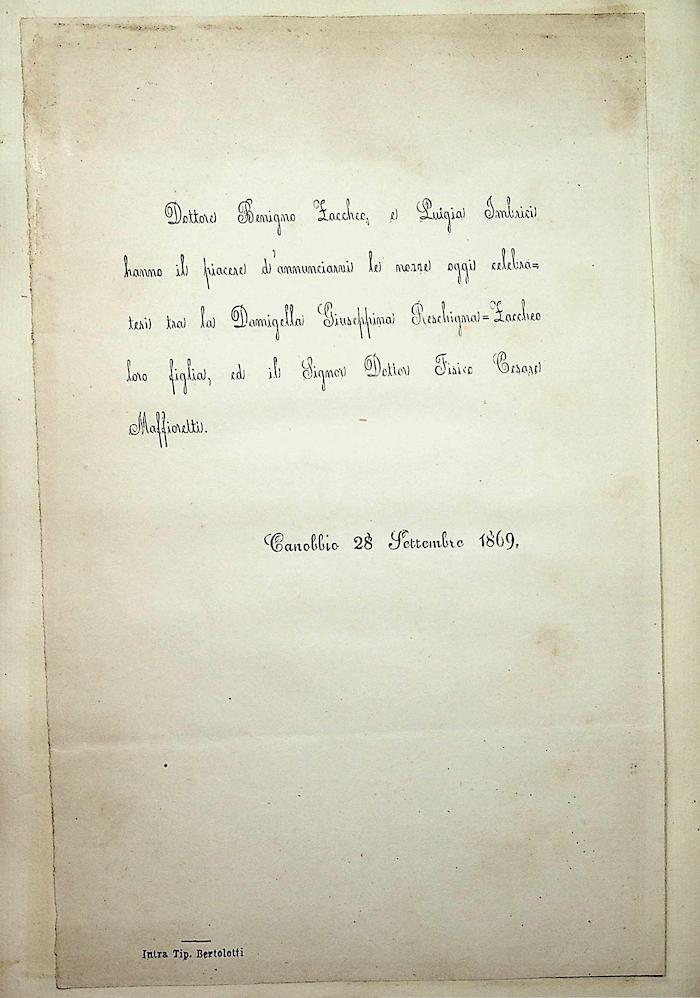 Dottore Benigno Zaccheo, e Luigia Imbrici
hanno il piacere d'annunciarvi le nozze oggi celebra=
tesi tra la Damigella Giuseppina Reschigna=Zaccheo
loro figlia, ed il Signor Dottor Fisico Cesare
Maffioretti.
Canobbio 28 Settembre 1869.
Intra Tip. Bertolotti